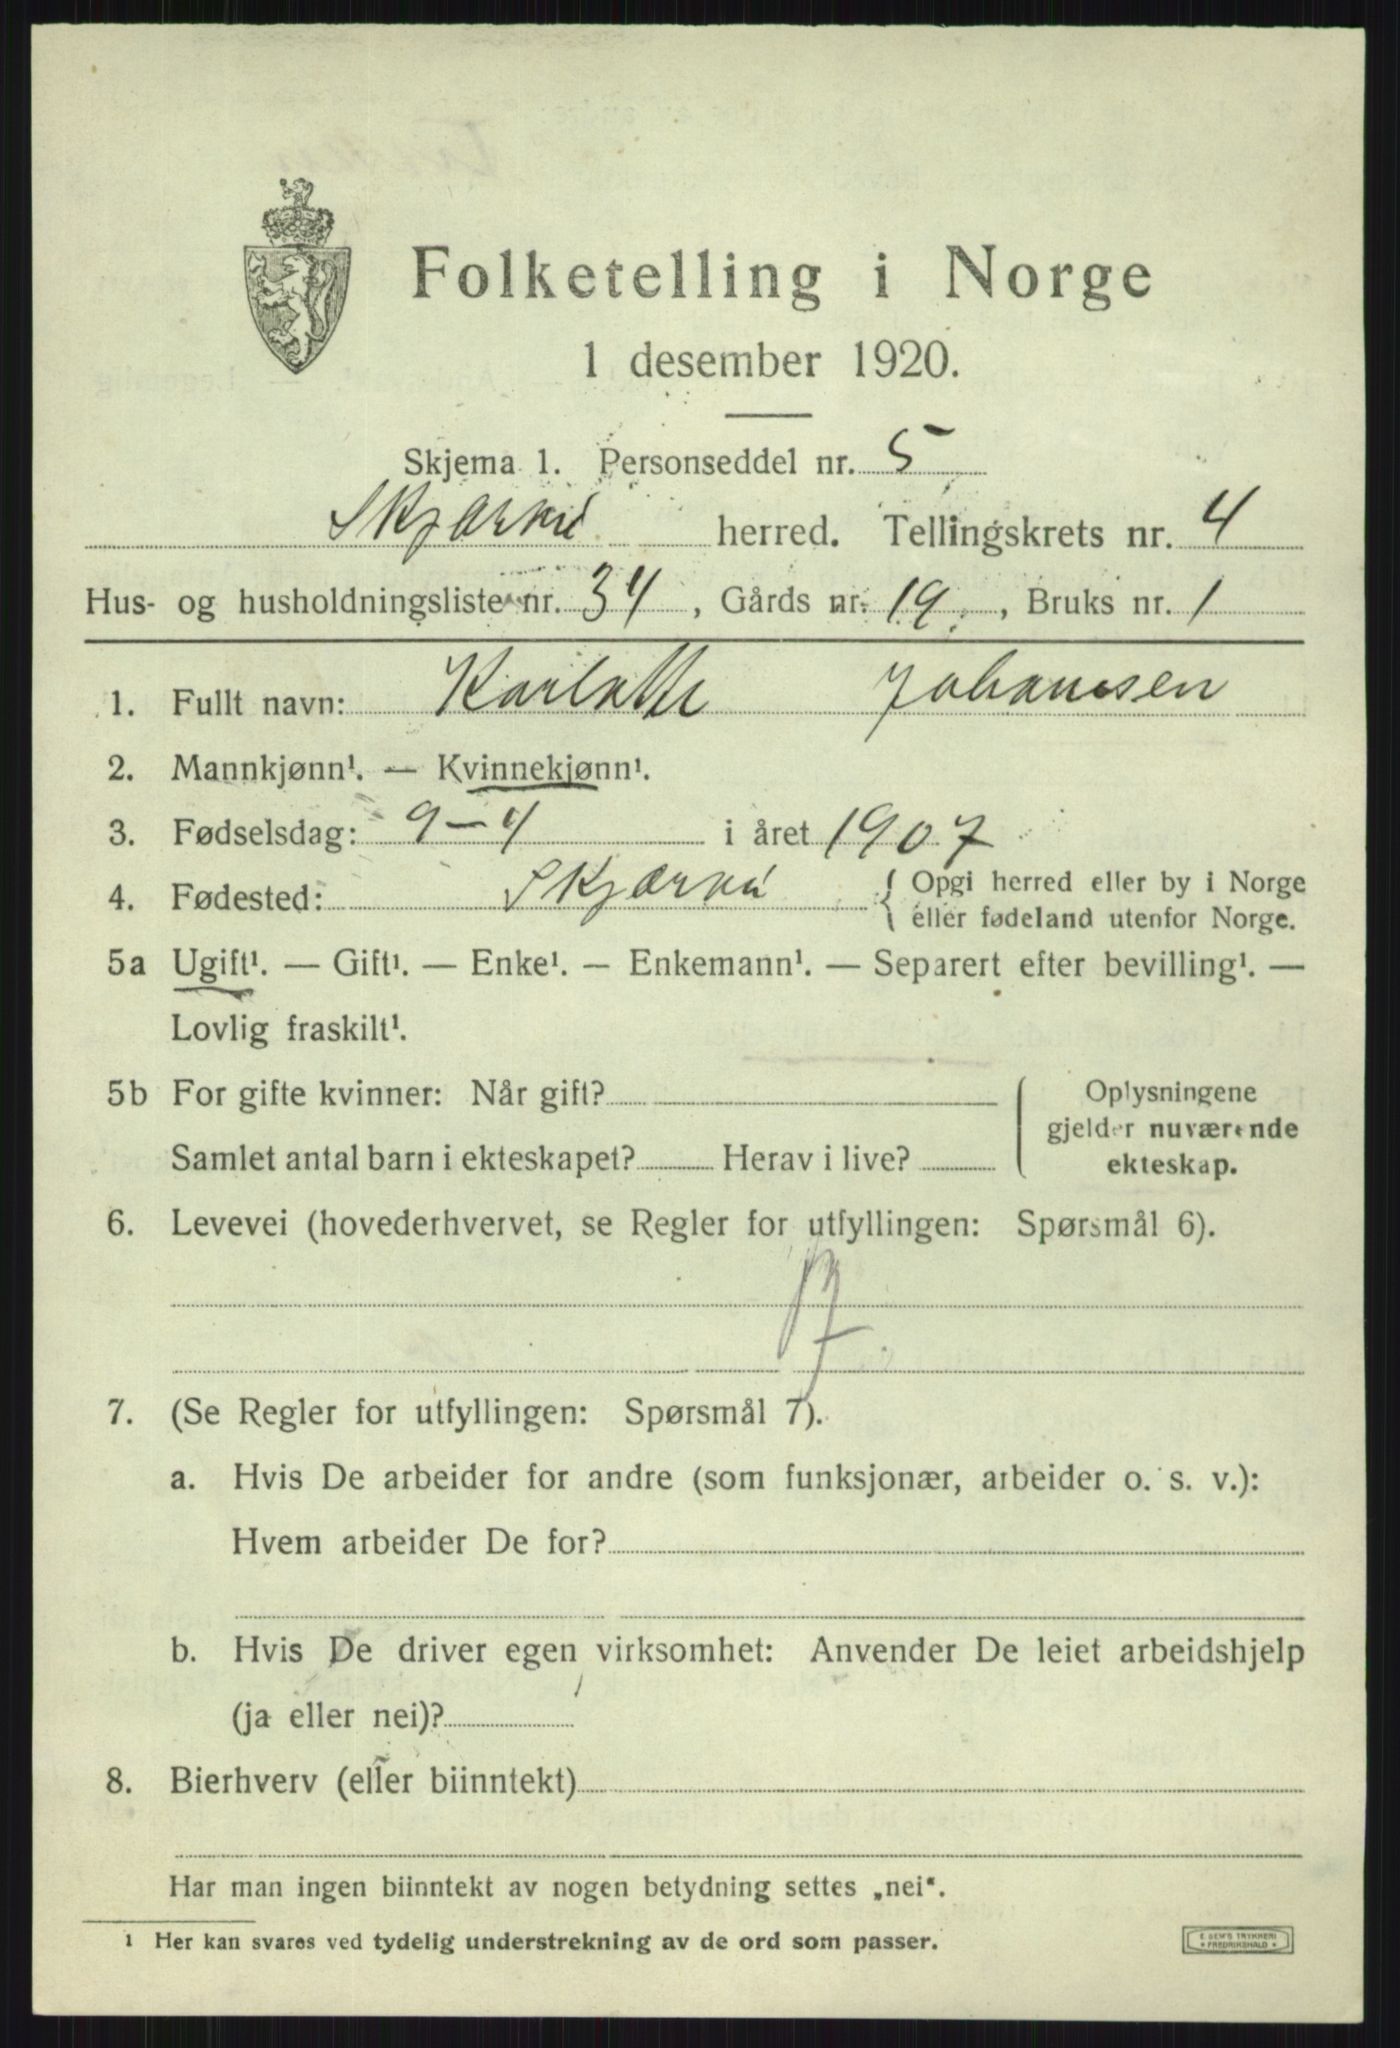 Folketelling i Norge
1 desember 1920.
Skjema 1. Personseddel nr. 5
Skjærvø herred. Tellingskrets nr. 4
Hus- og husholdningsliste nr. 34, Gårds nr. 19, Bruks nr. 1
1. Fullt navn: Karlotte Johansen
2. Mannkjønn¹. — Kvinnekjønn¹.
3. Fødselsdag: 9-4 i året 1907
4. Fødested: Skjærvø { Opgi herred eller by i Norge
eller fødeland utenfor Norge.
5a Ugift¹. — Gift¹. — Enke¹. — Enkemann¹. — Separert efter bevilling¹. —
Lovlig fraskilt¹.
5b For gifte kvinner: Når gift? ( Oplysningene
gjelder nuværende
Samlet antal barn i ekteskapet? Herav i live? ekteskap.
6. Levevei (hovederhvervet, se Regler for utfyllingen: Spørsmål 6).
7. (Se Regler for utfyllingen: Spørsmål 7).
a. Hvis De arbeider for andre (som funksjonær, arbeider o. s. v.):
Hvem arbeider De for?
b. Hvis De driver egen virksomhet: Anvender De leiet arbeidshjelp
(ja eller nei)?
8. Bierhverv (eller biinntekt)
Har man ingen biinntekt av nogen betydning settes „nei“.
¹ Her kan svares ved tydelig understrekning av de ord som passer.